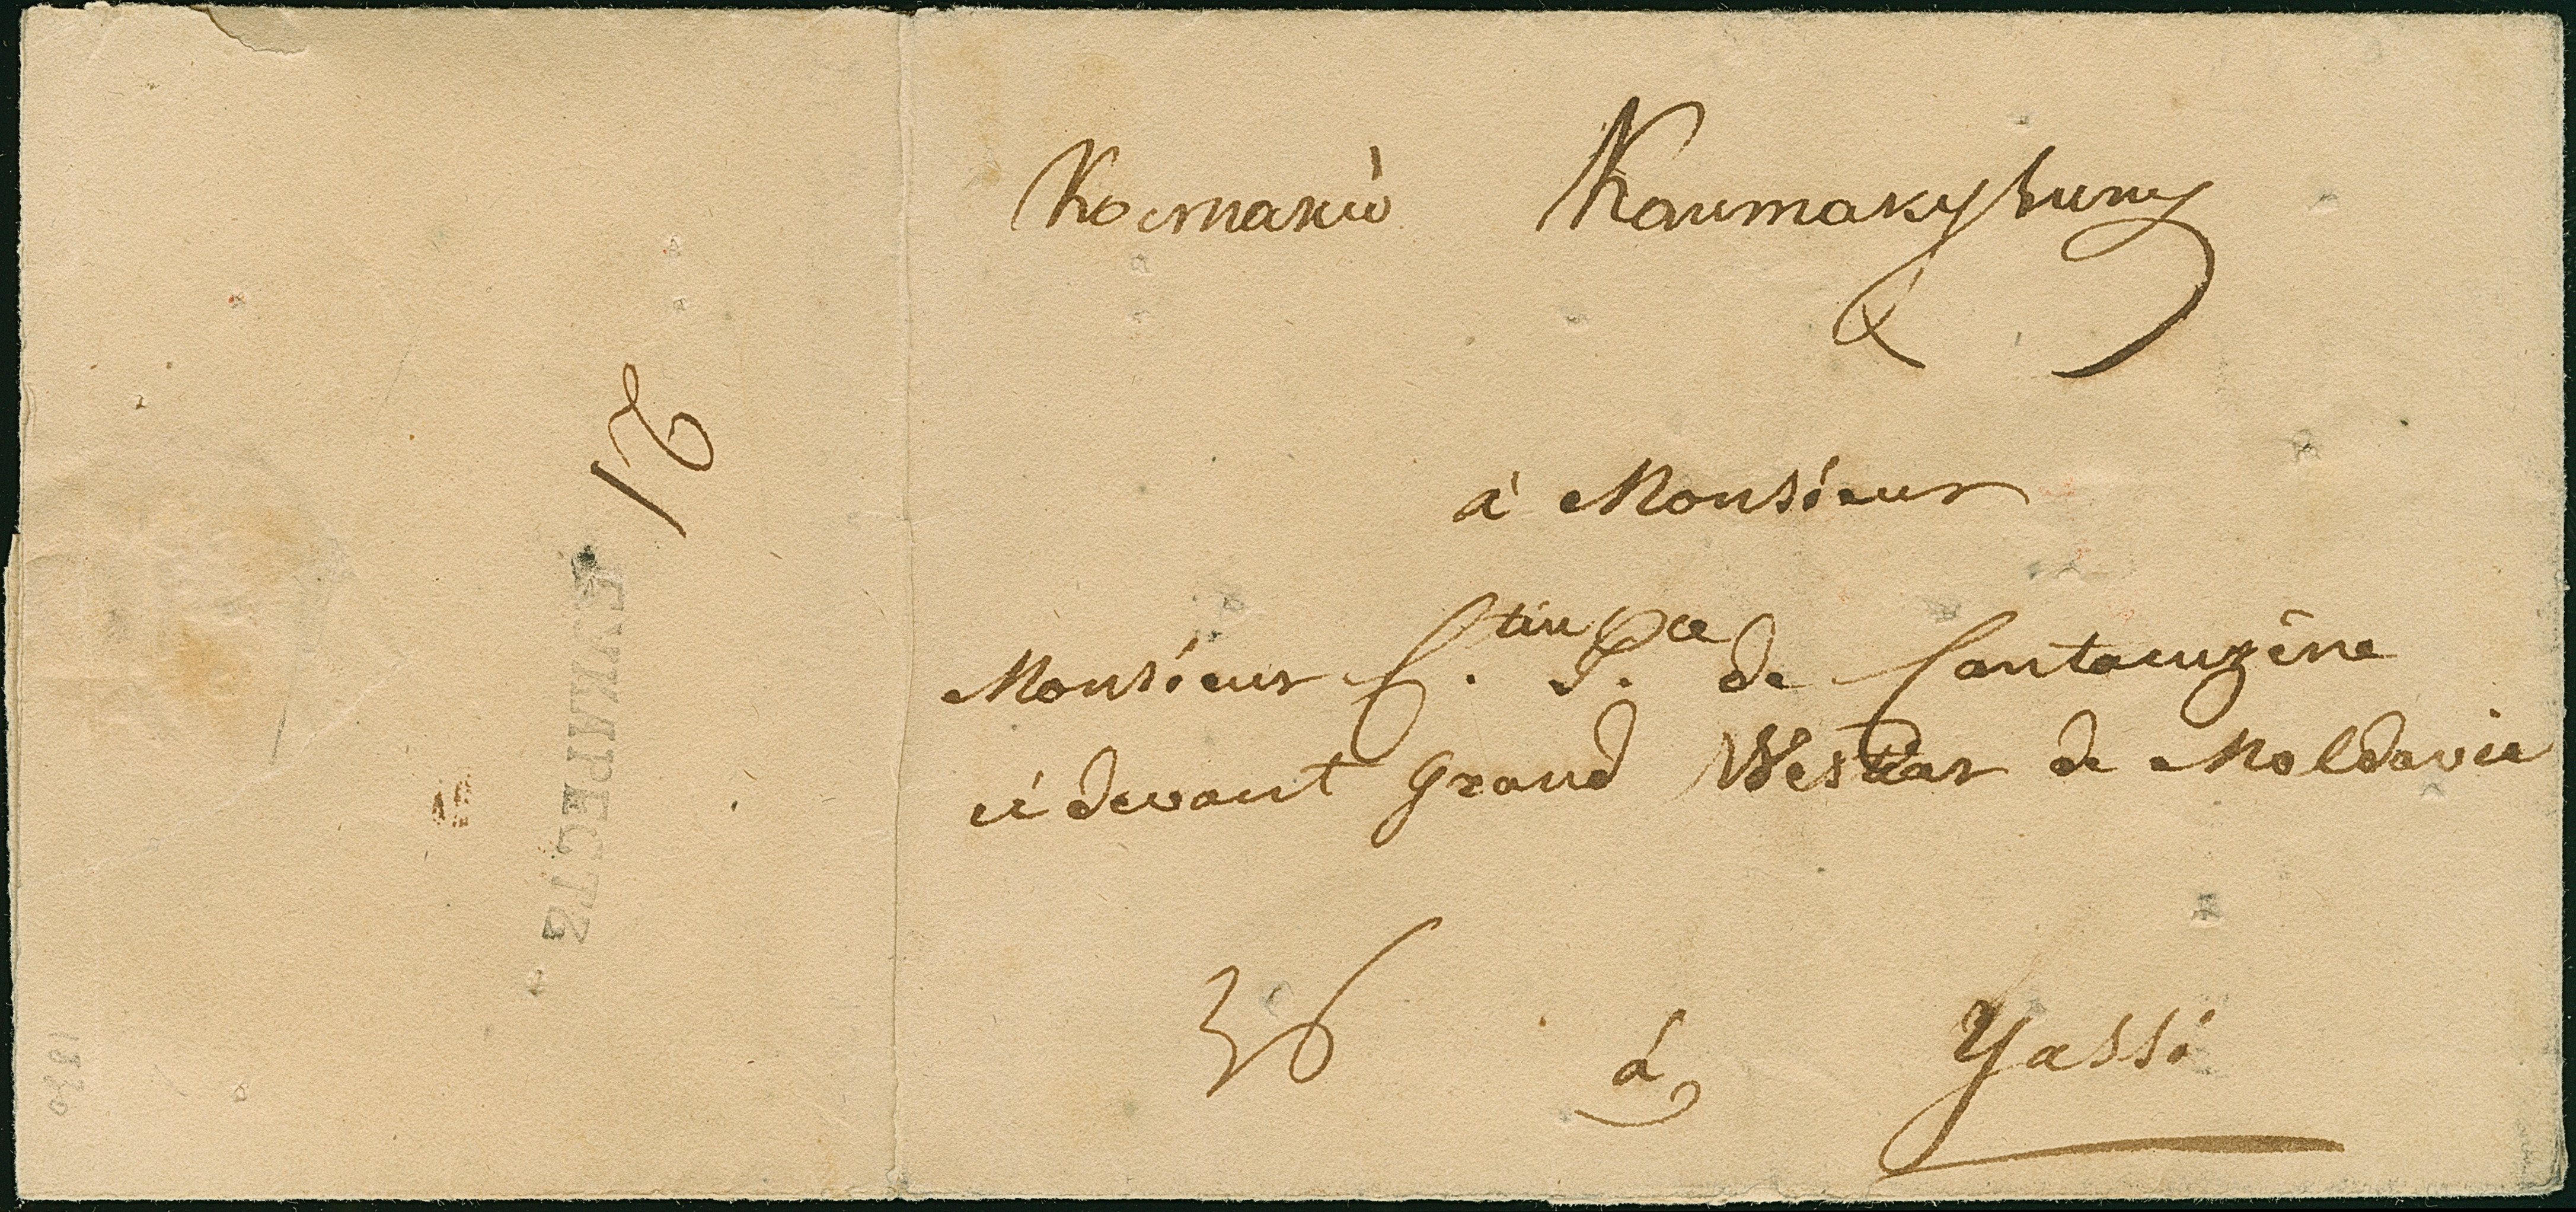 Костакію Кантакузину
à Monsieur
Monsieur C.tin P.ce de Cantacuzène
ci devant grand Westiar de Moldavie
36
à Yassi
БУКАРЕСТЪ